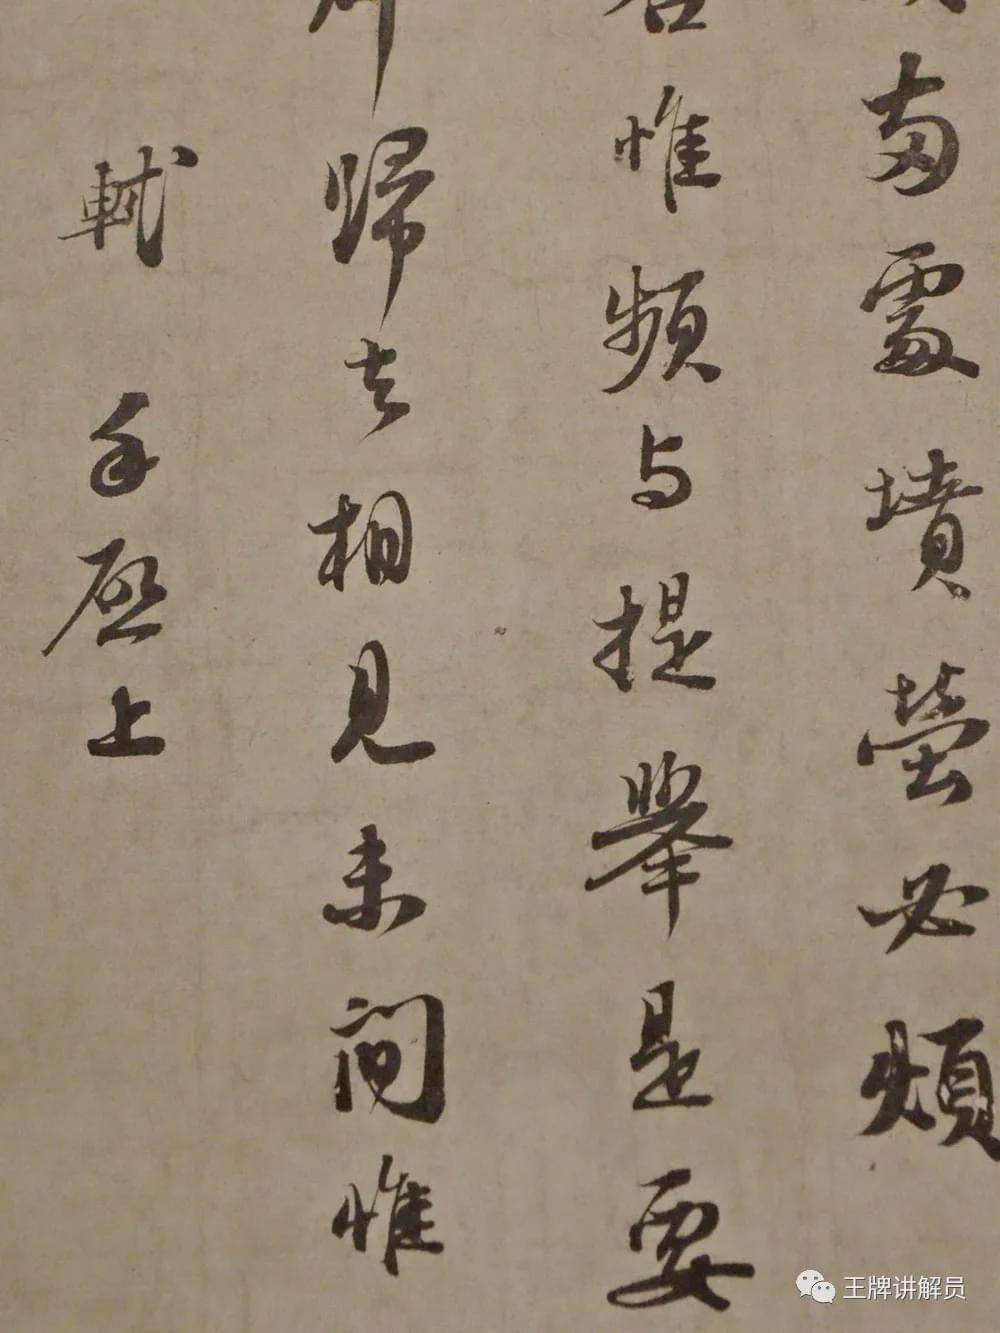 兩處墳塋必煩
君惟頻与提舉是要
歸去相見未間惟
軾手啓上
王牌讲解员